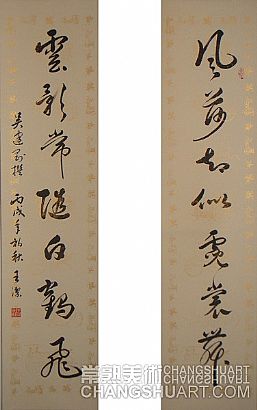 風荷却似霓裳舞
雲影常隨白鶴飛
丙戌年初秋 王潔
常熟美術 CHANGSHUART
CHANGSHUART.COM